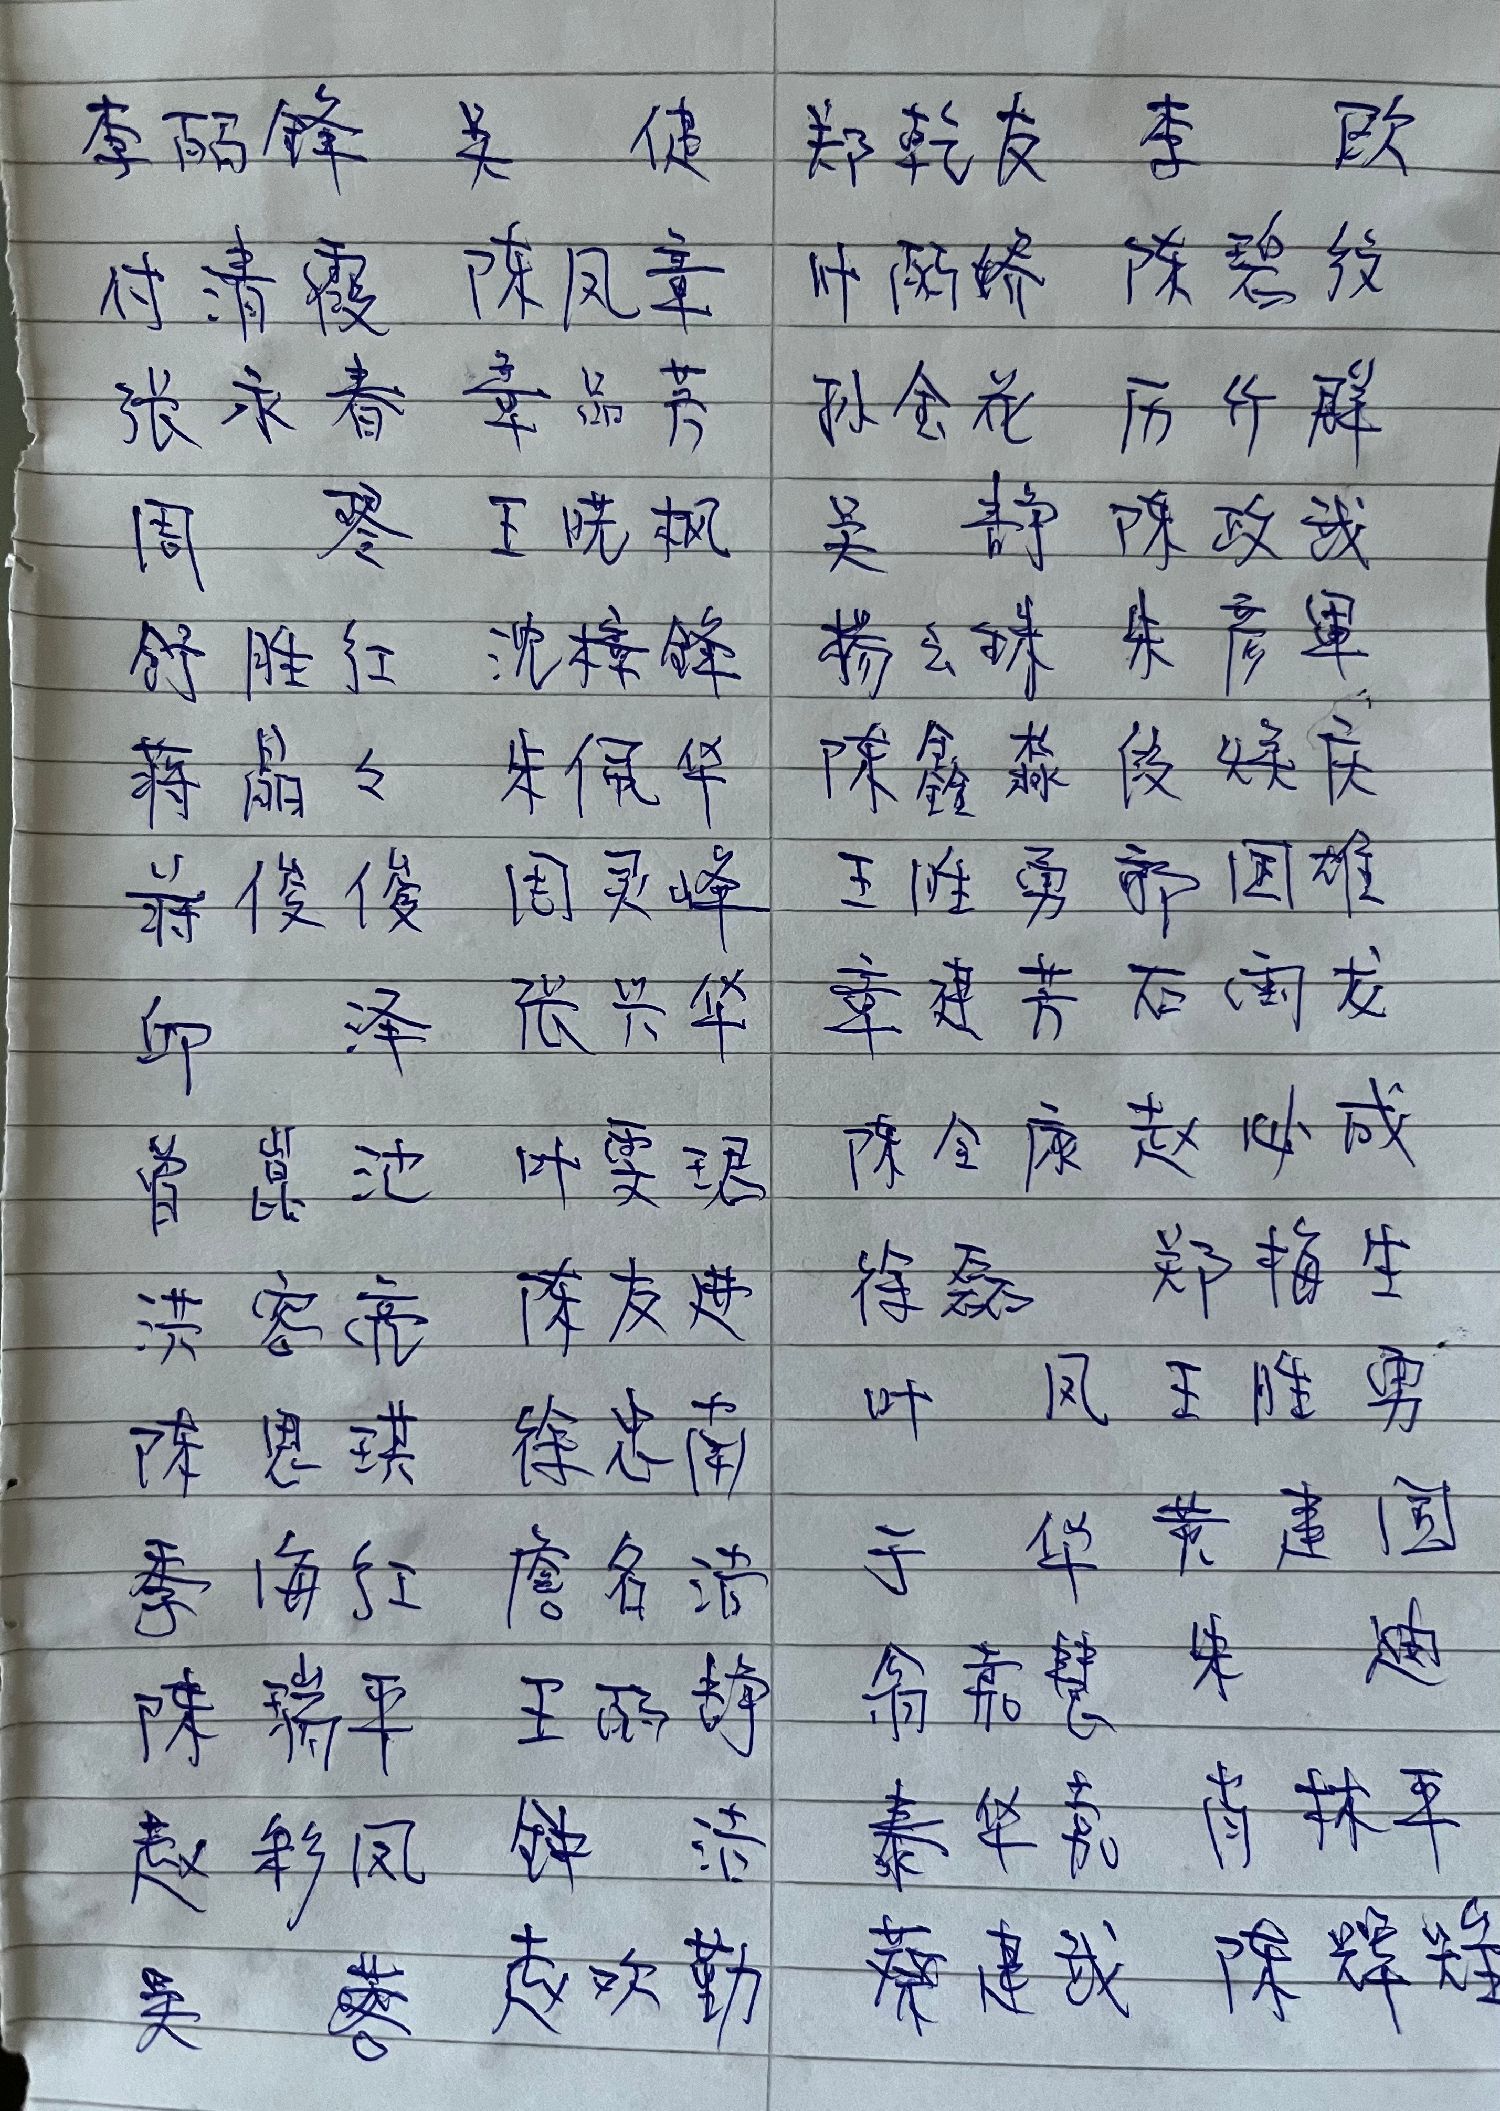 李丽锋 吴健 郑乾友 李欧
付清霞 陈凤章 叶丽娇 陈碧纹
张永春 章品芳 孙金花 历竹群
周翠 王晓枫 吴静 陈政诚
舒胜红 沈樟锋 杨云珠 朱彦军
蒋晶々 朱佩华 陈鑫淼 焕庆
蒋俊俊 周灵峰 王胜勇 郭国雄
邱泽 张兴华 章建芳 石雨龙
曾昆池 叶雯珺 陈全康 赵妙成
洪容亮 陈友进 徐磊 郑梅生
陈思琪 徐忠南 叶凤 王胜勇
季海红 詹名洁 于华 黄建国
陈瑞平 王丽静 翁嘉慧 朱迪
赵彩凤 钟洁 秦华嘉 肖林平
吴蓉 赵欢勤 蔡建诚 陈辉煌